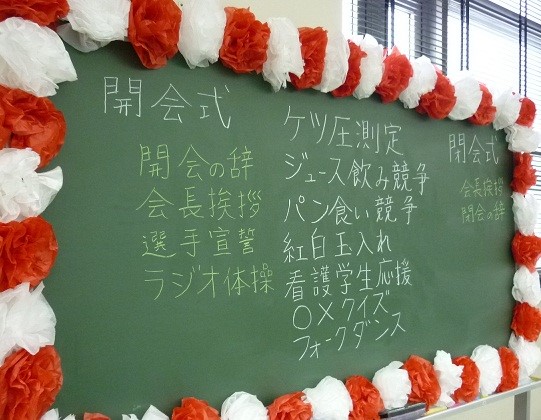 開会式
開会の辞
会長挨拶
選手宣誓
ラジオ体操
ケツ圧測定
ジュース飲み競争
パン食い競争
紅白玉入れ
看護学生応援
○×クイズ
フォークダンス
閉会式
会長挨拶
閉会の辞